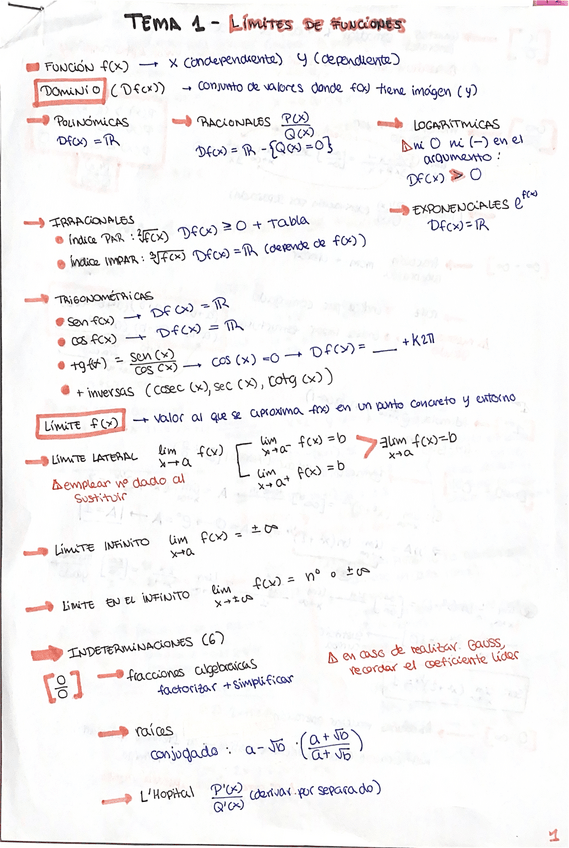 TEMA 1 - LÍMITES DE FUNCIONES
FUNCIÓN f(x) → x (independiente) y (dependiente)
DOMINIO (Df(x)) → conjunto de valores donde f(x) tiene imágen (y)
→ POLINÓMICAS
Df(x) = ℝ
→ RACIONALES P(x)/Q(x)
Df(x) = ℝ - {Q(x) = 0}
→ LOGARÍTMICAS
⚠ ni 0 ni (-) en el
argumento:
Df(x) > 0
→ IRRACIONALES
• Índice PAR: ²√f(x) Df(x) ≥ 0 + Tabla
• Índice IMPAR: ³√f(x) Df(x) = ℝ (depende de f(x))
→ EXPONENCIALES e^f(x)
Df(x) = ℝ
→ TRIGONOMÉTRICAS
• sen f(x) → Df(x) = ℝ
• cos f(x) → Df(x) = ℝ
• tg f(x) = sen(x)/cos(x) → cos(x) = 0 → Df(x) = __ + K2π
• + inversas (cosec(x), sec(x), cotg(x))
LÍMITE f(x) → valor al que se aproxima f(x) en un punto concreto y entorno
→ LÍMITE LATERAL lim x→a f(x) lim x→a⁻ f(x) = b > ∃lim x→a f(x) = b
lim x→a⁺ f(x) = b
⚠ emplear nº dado al
sustituir
→ LÍMITE INFINITO lim x→a f(x) = ±∞
→ LIMITE EN EL INFINITO lim x→±∞ f(x) = nº o ±∞
→ INDETERMINACIONES (6)
[0/0] → fracciones algebraicas
factorizar + simplificar
⚠ en caso de realizar Gauss,
recordar el coeficiente líder
→ raíces
conjugado: a-√b · (a+√b/a+√b)
→ L'Hopital P'(x)/Q'(x) (derivar por separado)
1